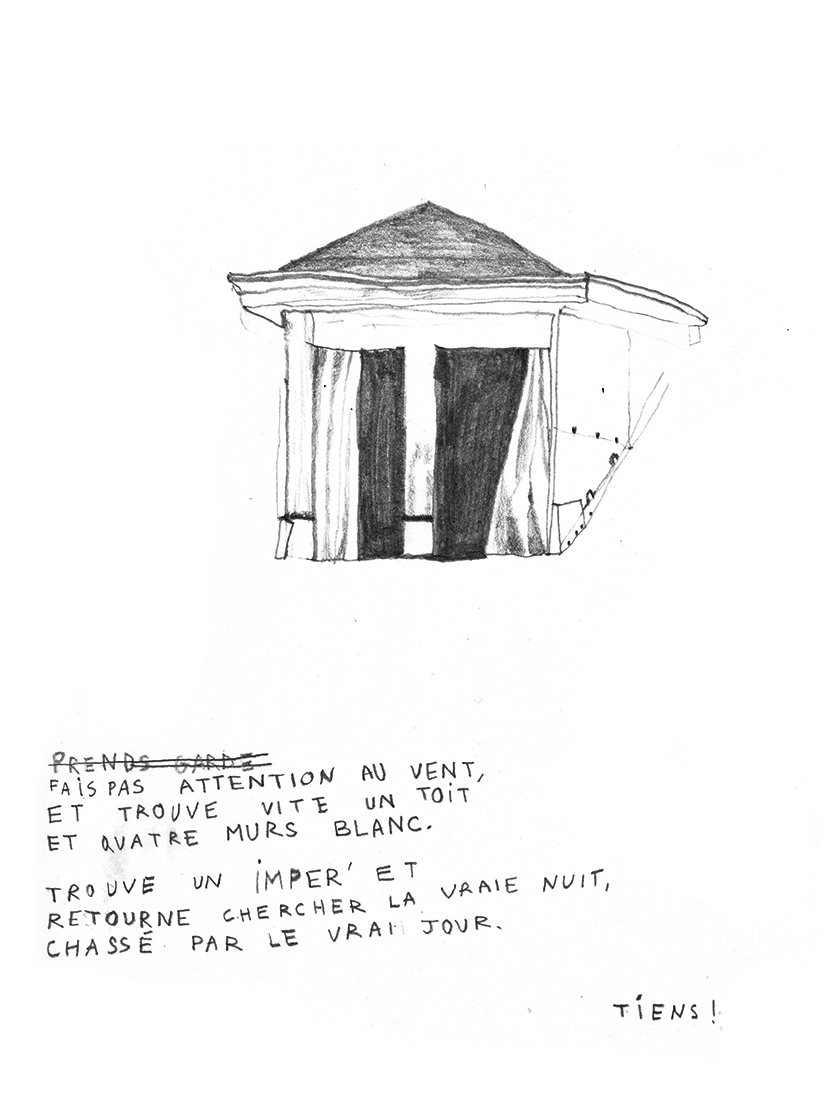 PRENDS GARDE
FAIS PAS ATTENTION AU VENT,
ET TROUVE VITE UN TOIT
ET QUATRE MURS BLANC.
TROUVE UN IMPER' ET
RETOURNE CHERCHER LA VRAIE NUIT,
CHASSÉ PAR LE VRAI JOUR.
TIENS!